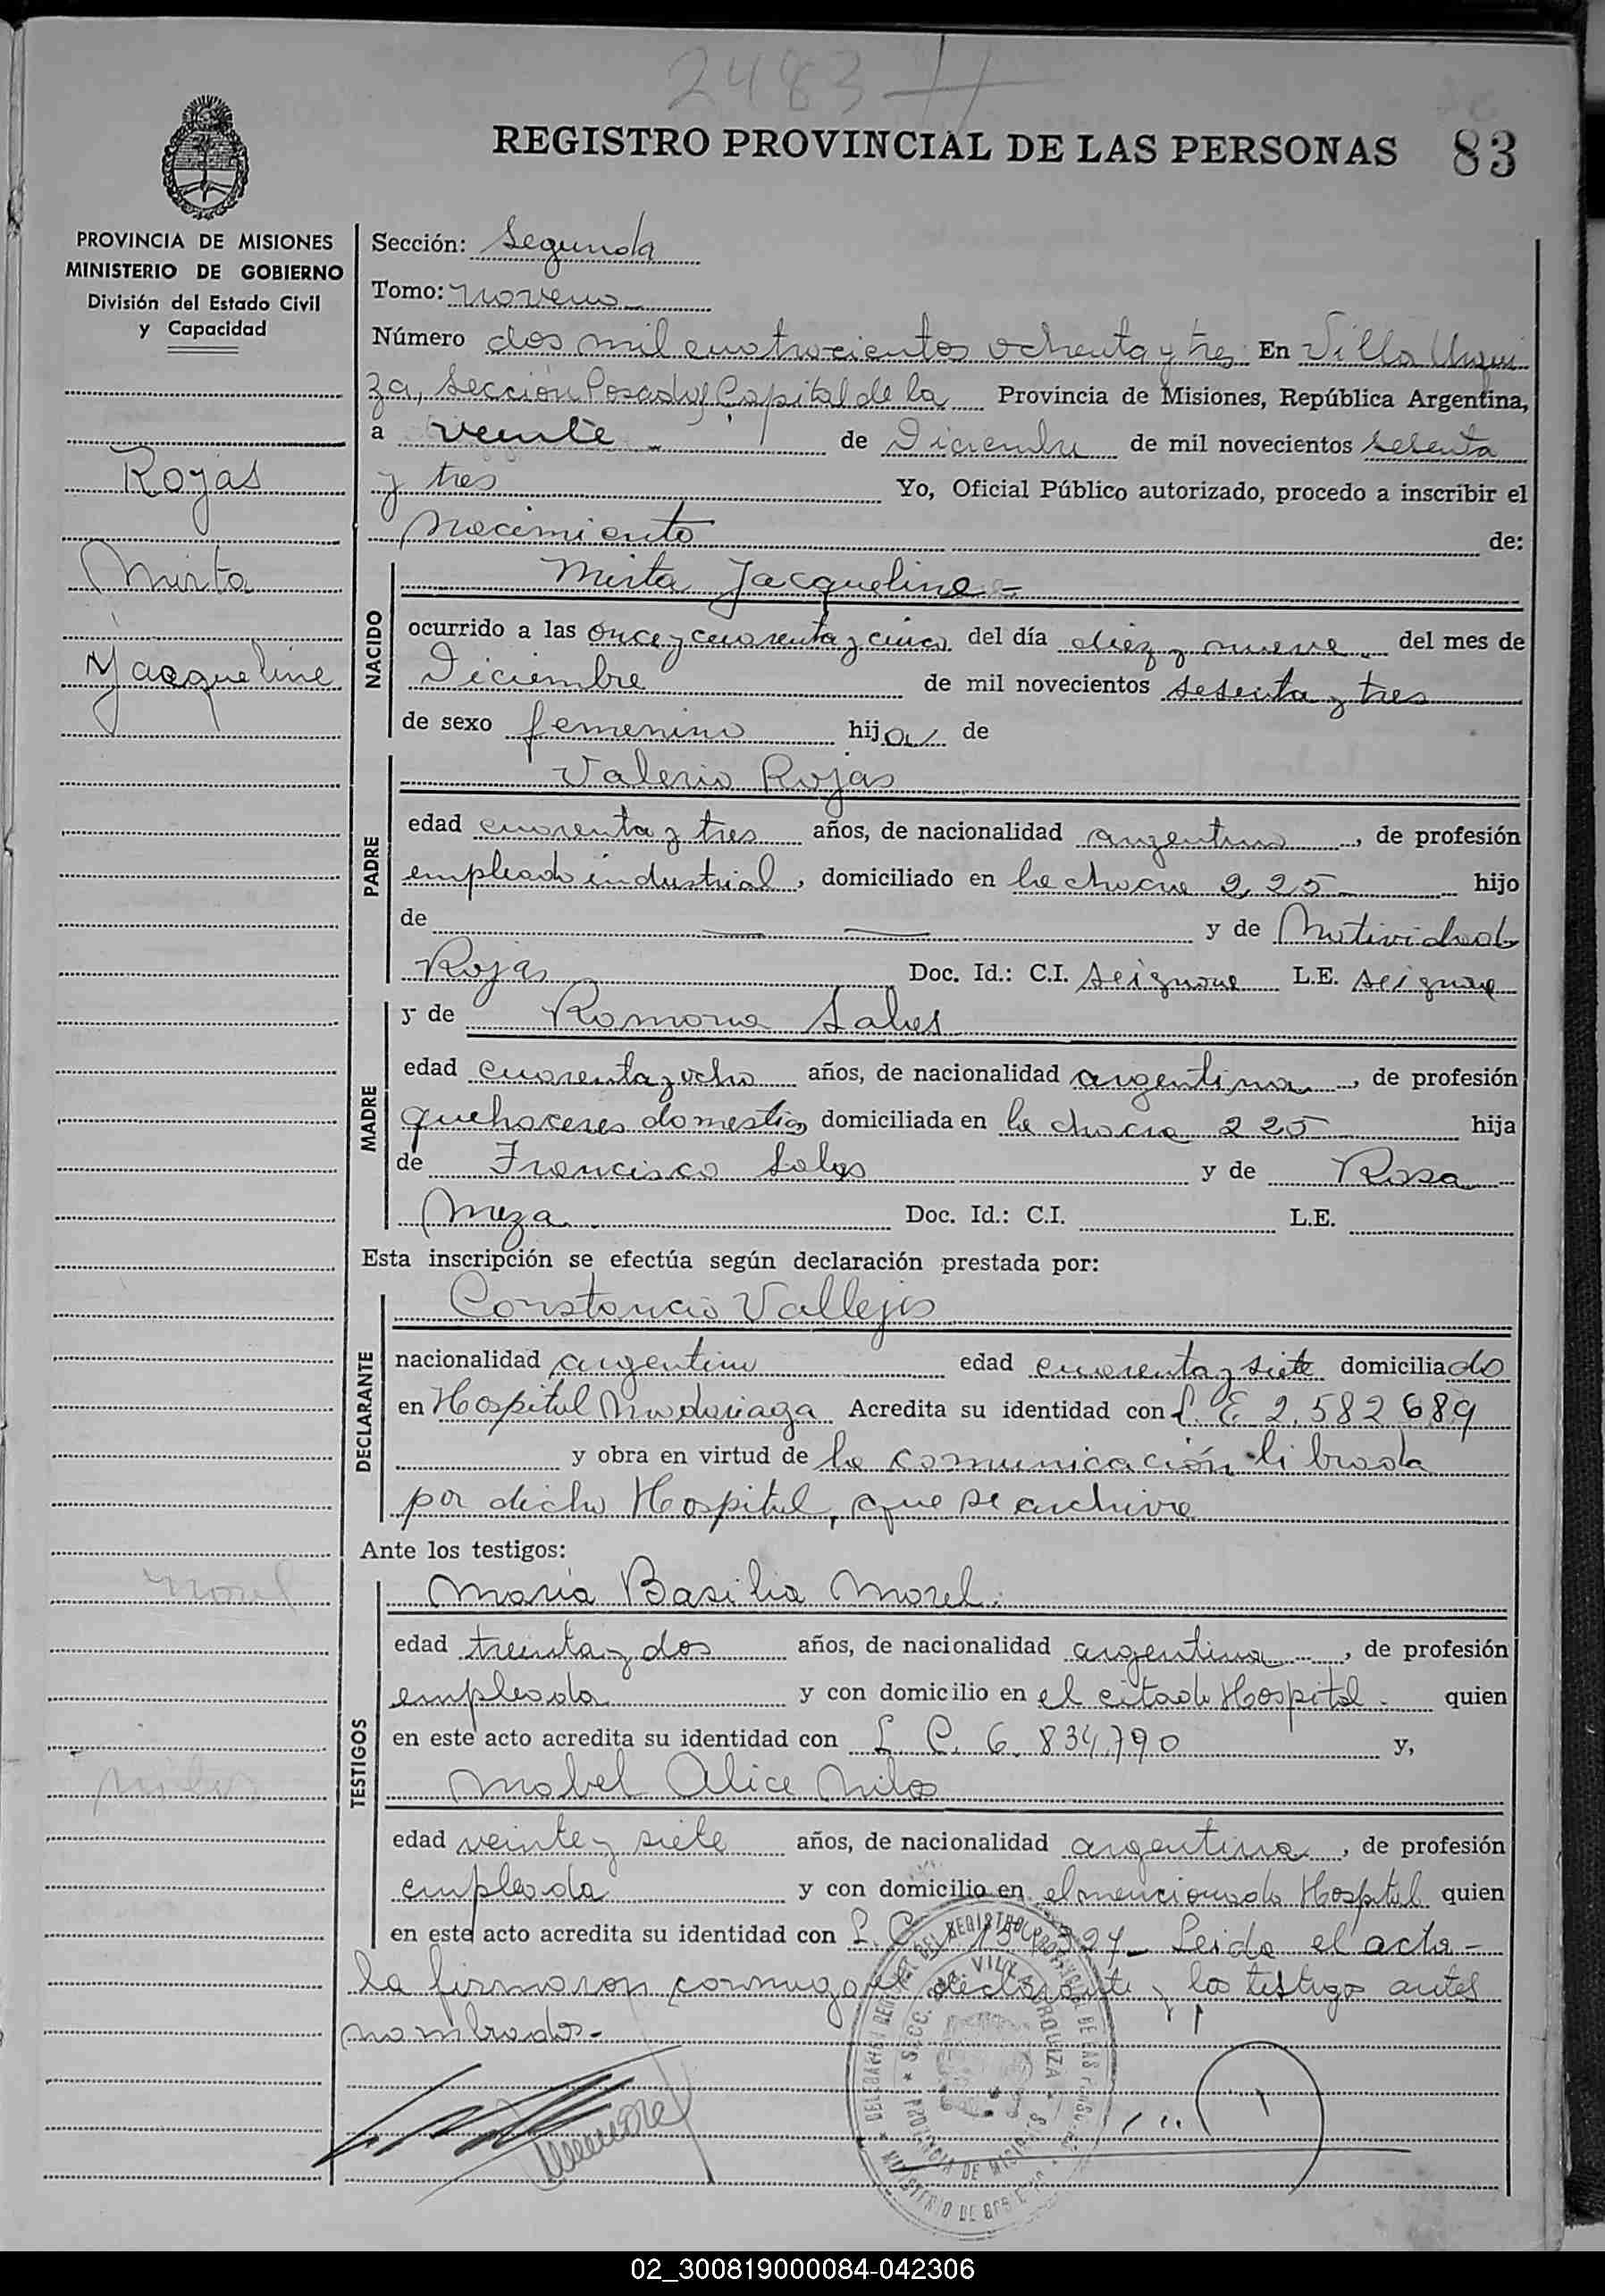 2483
REGISTRO PROVINCIAL DE LAS PERSONAS 83
PROVINCIA DE MISIONES
MINISTERIO DE GOBIERNO
División del Estado Civil
y Capacidad
Rojas
Mirta
Jacqueline
Sección: Segunda
Tomo: noveno
Número dos mil cuatrocientos ochenta y tres En Villa Urqui
za, Sección Posadas Capital de la Provincia de Misiones, República Argentina,
a veinte de Diciembre de mil novecientos setenta
y tres Yo, Oficial Público autorizado, procedo a inscribir el
nacimiento de:
NACIDO
Mirta Jacqueline
ocurrido a las once y cuarenta y cinco del día diez y nueve del mes de
Diciembre de mil novecientos setenta y tres
de sexo femenino hija de
PADRE
Valerio Rojas
edad cuarenta y tres años, de nacionalidad argentino, de profesión
empleado industrial, domiciliado en la chacra 225 hijo
de y de Natividad
Rojas Doc. Id.: C.I. se ignora L.E. se ignora
MADRE
y de Ramona Sales
edad cuarenta y ocho años, de nacionalidad argentina, de profesión
quehaceres domesticos domiciliada en la chacra 225 hija
de Francisco Sales y de Rosa
Meza Doc. Id.: C.I. L.E.
Esta inscripción se efectúa según declaración prestada por:
DECLARANTE
Constancio Vallejos
nacionalidad argentino edad cuarenta y siete domiciliado
en Hospital Madariaga Acredita su identidad con L. E 2.582689
y obra en virtud de la comunicación librada
por dicho Hospital, que se archiva
Ante los testigos:
TESTIGOS
Maria Basilia Morel
edad treinta y dos años, de nacionalidad argentina, de profesión
empleada y con domicilio en el citado Hospital. quien
en este acto acredita su identidad con L. C. 6.834.790 y,
Mabel Alice
edad veinte y siete años, de nacionalidad argentina, de profesión
empleada y con domicilio en el mencionado Hospital quien
en este acto acredita su identidad con L. C. Leida el acta
la firmaron conmigo el declarante y los testigos antes
nombrados.-
02_300819000084-042306